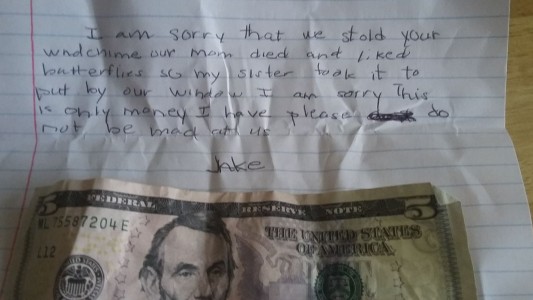 I am sorry that we stold your
wndchime our mom died and liked
butterflies so my sister took it to
put by our window I am sorry This
is only money I have please do
not be mad at us
Jake
5 FEDERAL RESERVE NOTE 5
ML 75587204 E
THE UNITED STATES
OF AMERICA
L12